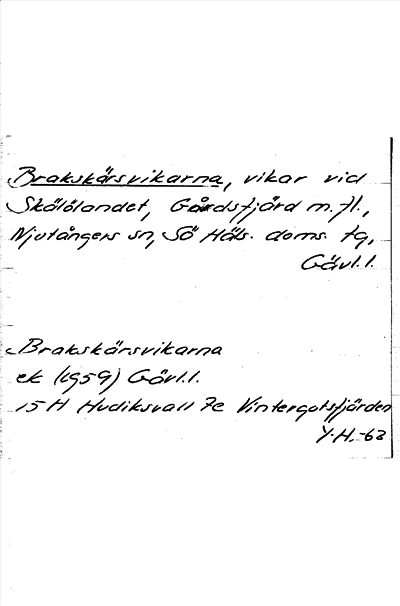 Brakskärsvikarna, vikar vid
Skålölandet, Gårdsfjärd m.fl.,
Njutångers sn, Sö Häls. doms. tg,
Gävl.l.
Brakskärsvikarna
ek (1959) Gävl.l.
15H Hudiksvall 7e Vintergatsfjärden
Y.H.-63